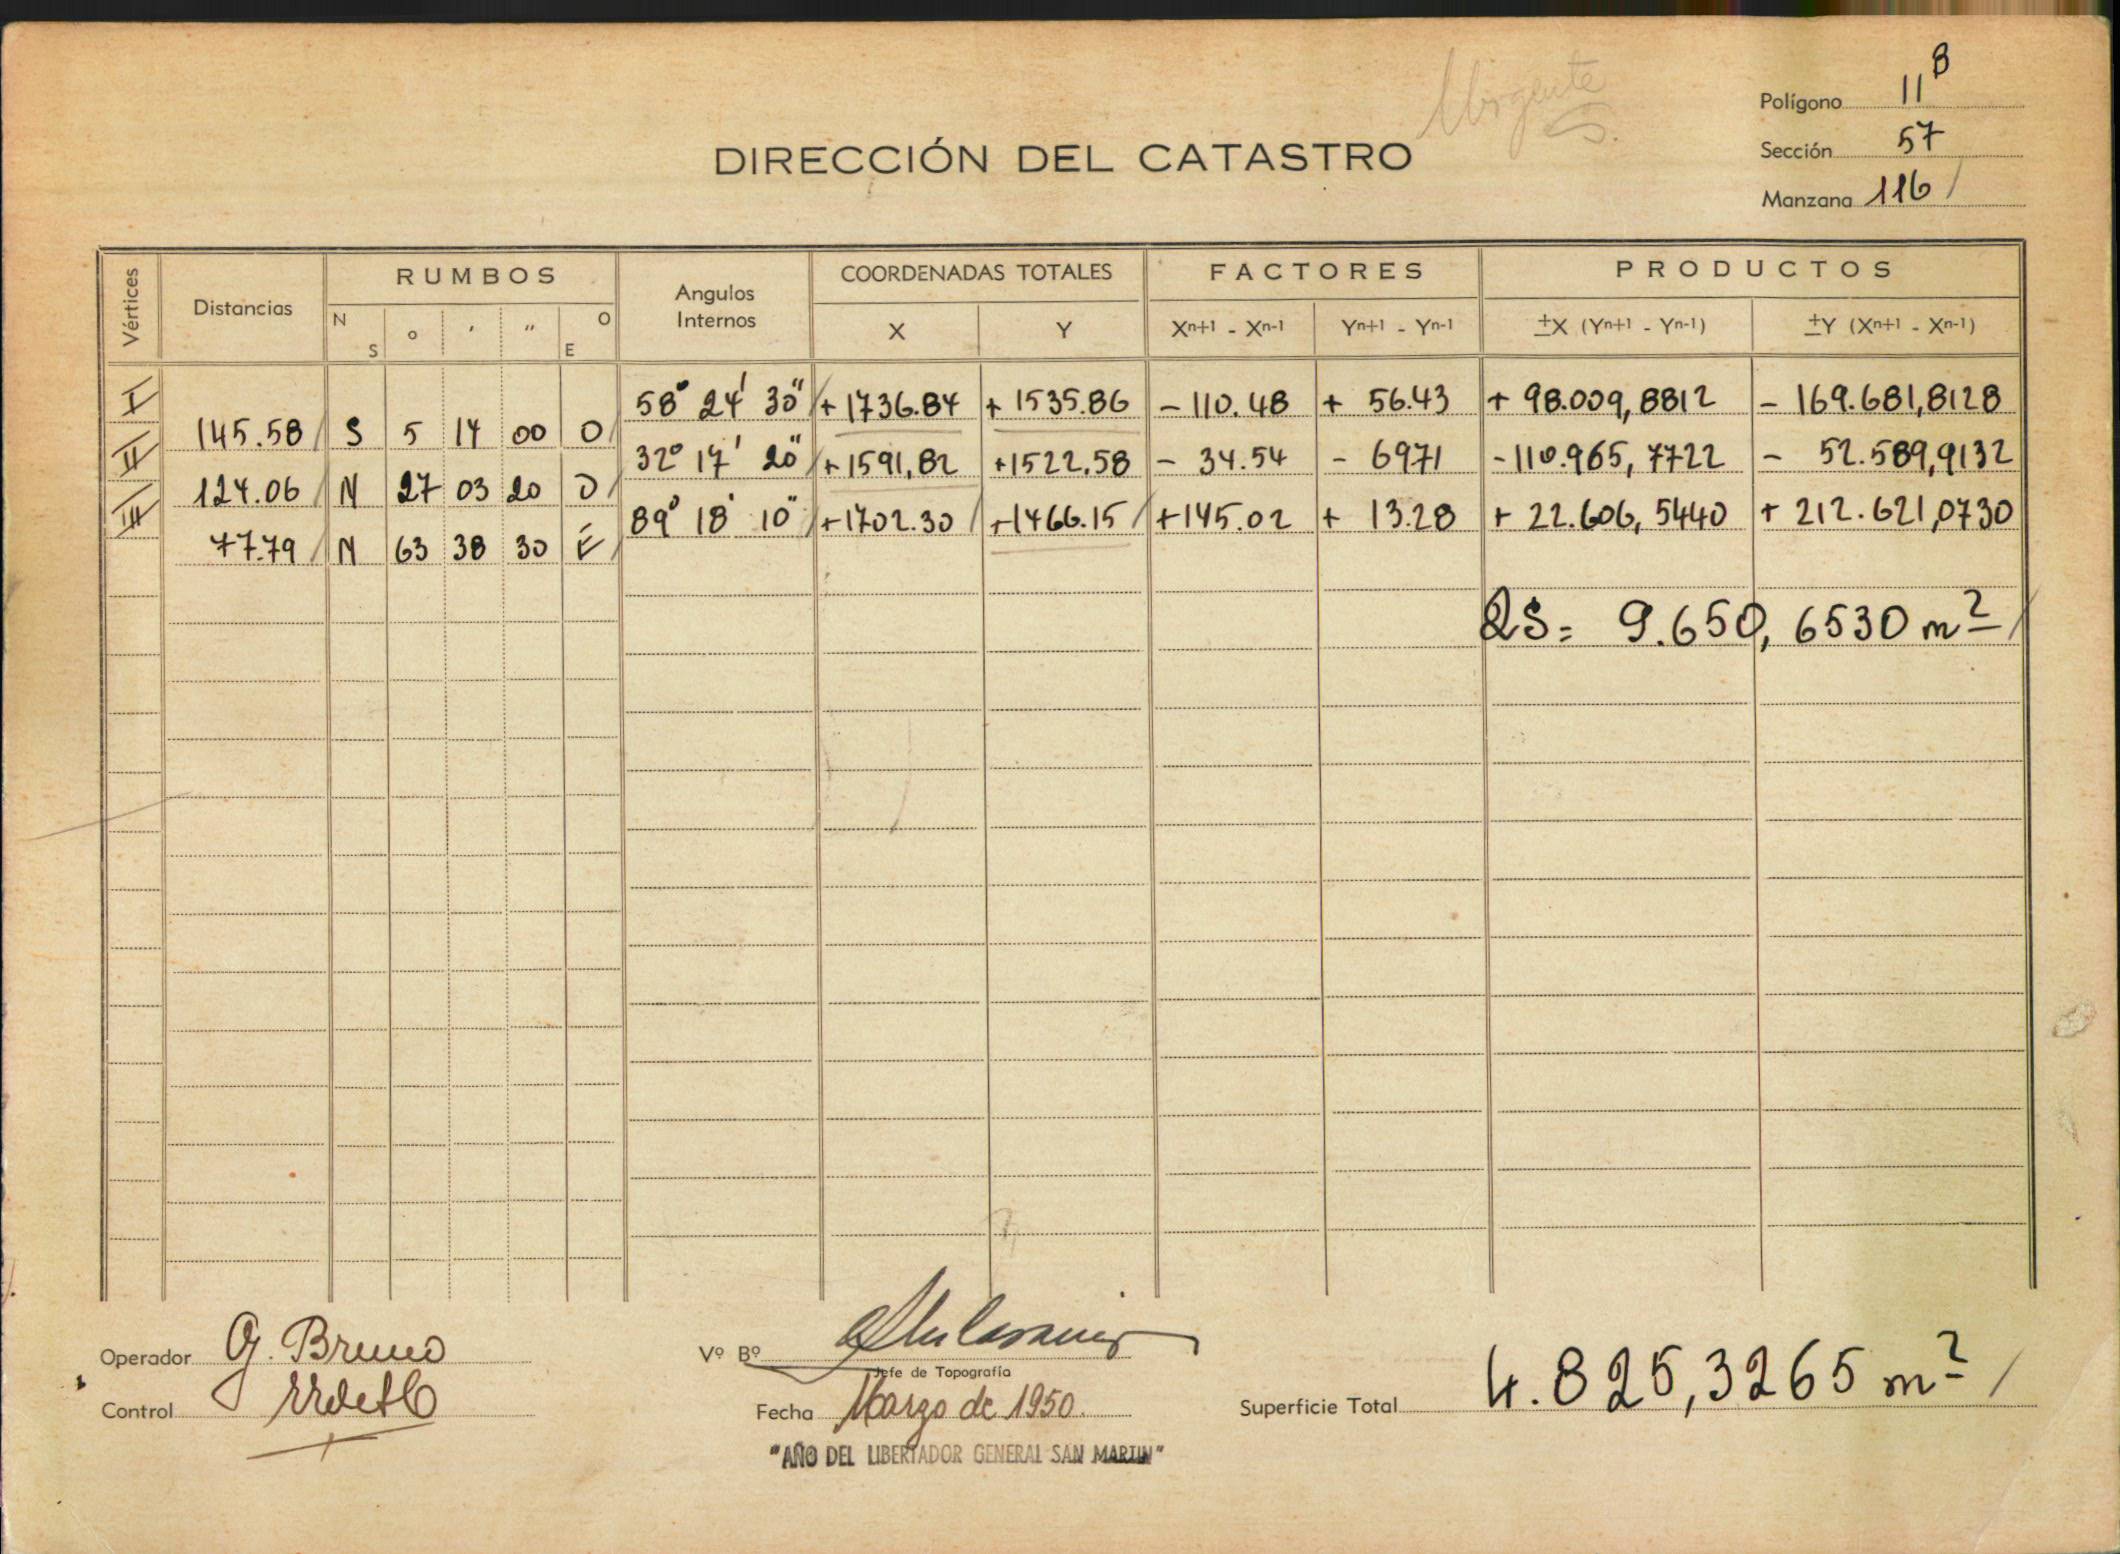 Urgente
Polígono 11 B
Sección 57
Manzana 116
DIRECCIÓN DEL CATASTRO
Vértices Distancias RUMBOS Angulos Internos COORDENADAS TOTALES FACTORES PRODUCTOS
N S ° ' " O E X Y Xn+1 - Xn-1 Yn+1 - Yn-1 ±X (Yn+1 - Yn-1) ±Y (Xn+1 - Xn-1)
I 58° 24' 30" + 1736.84 + 1535.86 - 110.48 + 56.43 + 98.009,8812 - 169.681,8128
145.58 S 5 14 00 O
II 32° 17' 20" + 1591,82 + 1522,58 - 34.54 - 6971 - 110.965,7722 - 52.589,9132
124.06 N 27 03 20 O
III 89° 18' 10" + 1702.30 + 1466.15 + 145.02 + 13.28 + 22.606,5440 + 212.621,0730
77.79 N 63 38 30 E
2S = 9.650,6530 m2
Operador G. Bruno
Control
Vº Bº
Jefe de Topografía
Fecha Marzo de 1950.
"AÑO DEL LIBERTADOR GENERAL SAN MARTIN"
Superficie Total 4.825,3265 m2